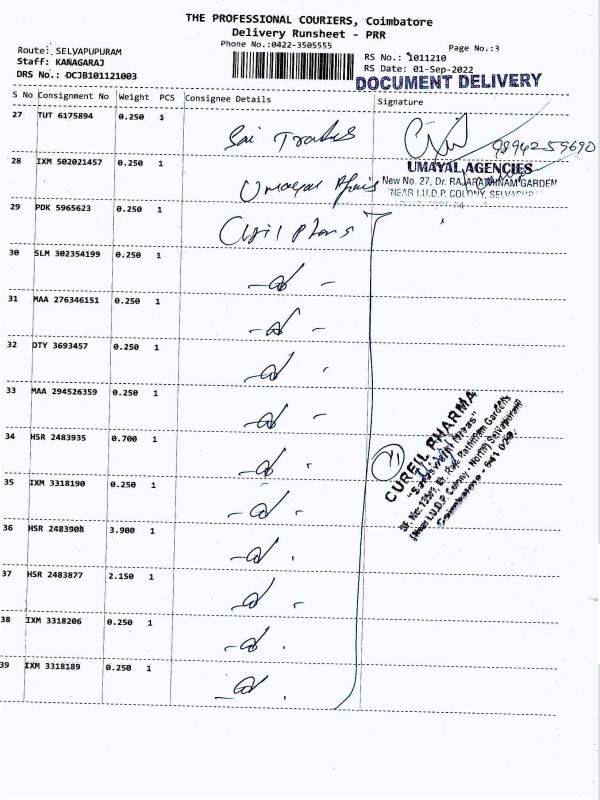 THE PROFESSIONAL COURIERS, Coimbatore
Delivery Runsheet - PRR
Phone No.:0422-3505555
Page No.:3
Route: SELVAPUPURAM
Staff: KANAGARAJ
DRS No.: DCJB101121003
RS No.: 1011210
RS Date: 01-Sep-2022
DOCUMENT DELIVERY
S No Consignment No Weight PCS Consignee Details Signature
27 TUT 6175894 0.250 1 Sai Trades 9894259690
28 IXM 502021457 0.250 1 Umayal
UMAYAL AGENCIES
New No. 27, Dr. RAJARATHNAM GARDEN
NEAR I.U.D.P. COLONY, SELVAPURAM
29 PDK 5965623 0.250 1
30 SLM 302354199 0.250 1
31 MAA 276346151 0.250 1
32 OTY 3693457 0.250 1
33 MAA 294526359 0.250 1
34 HSR 2483935 0.700 1
11
CUREIL PHARMA
"Saraswathi Nivas"
Dr. Raja Rathinam Gardens
(Near I.U.D.P. Colony - North) Selvapuram
Coimbatore - 641 026.
35 IXM 3318190 0.250 1
36 HSR 2483908 3.900 1
37 HSR 2483877 2.150 1
38 IXM 3318206 0.250 1
39 IXM 3318189 0.250 1